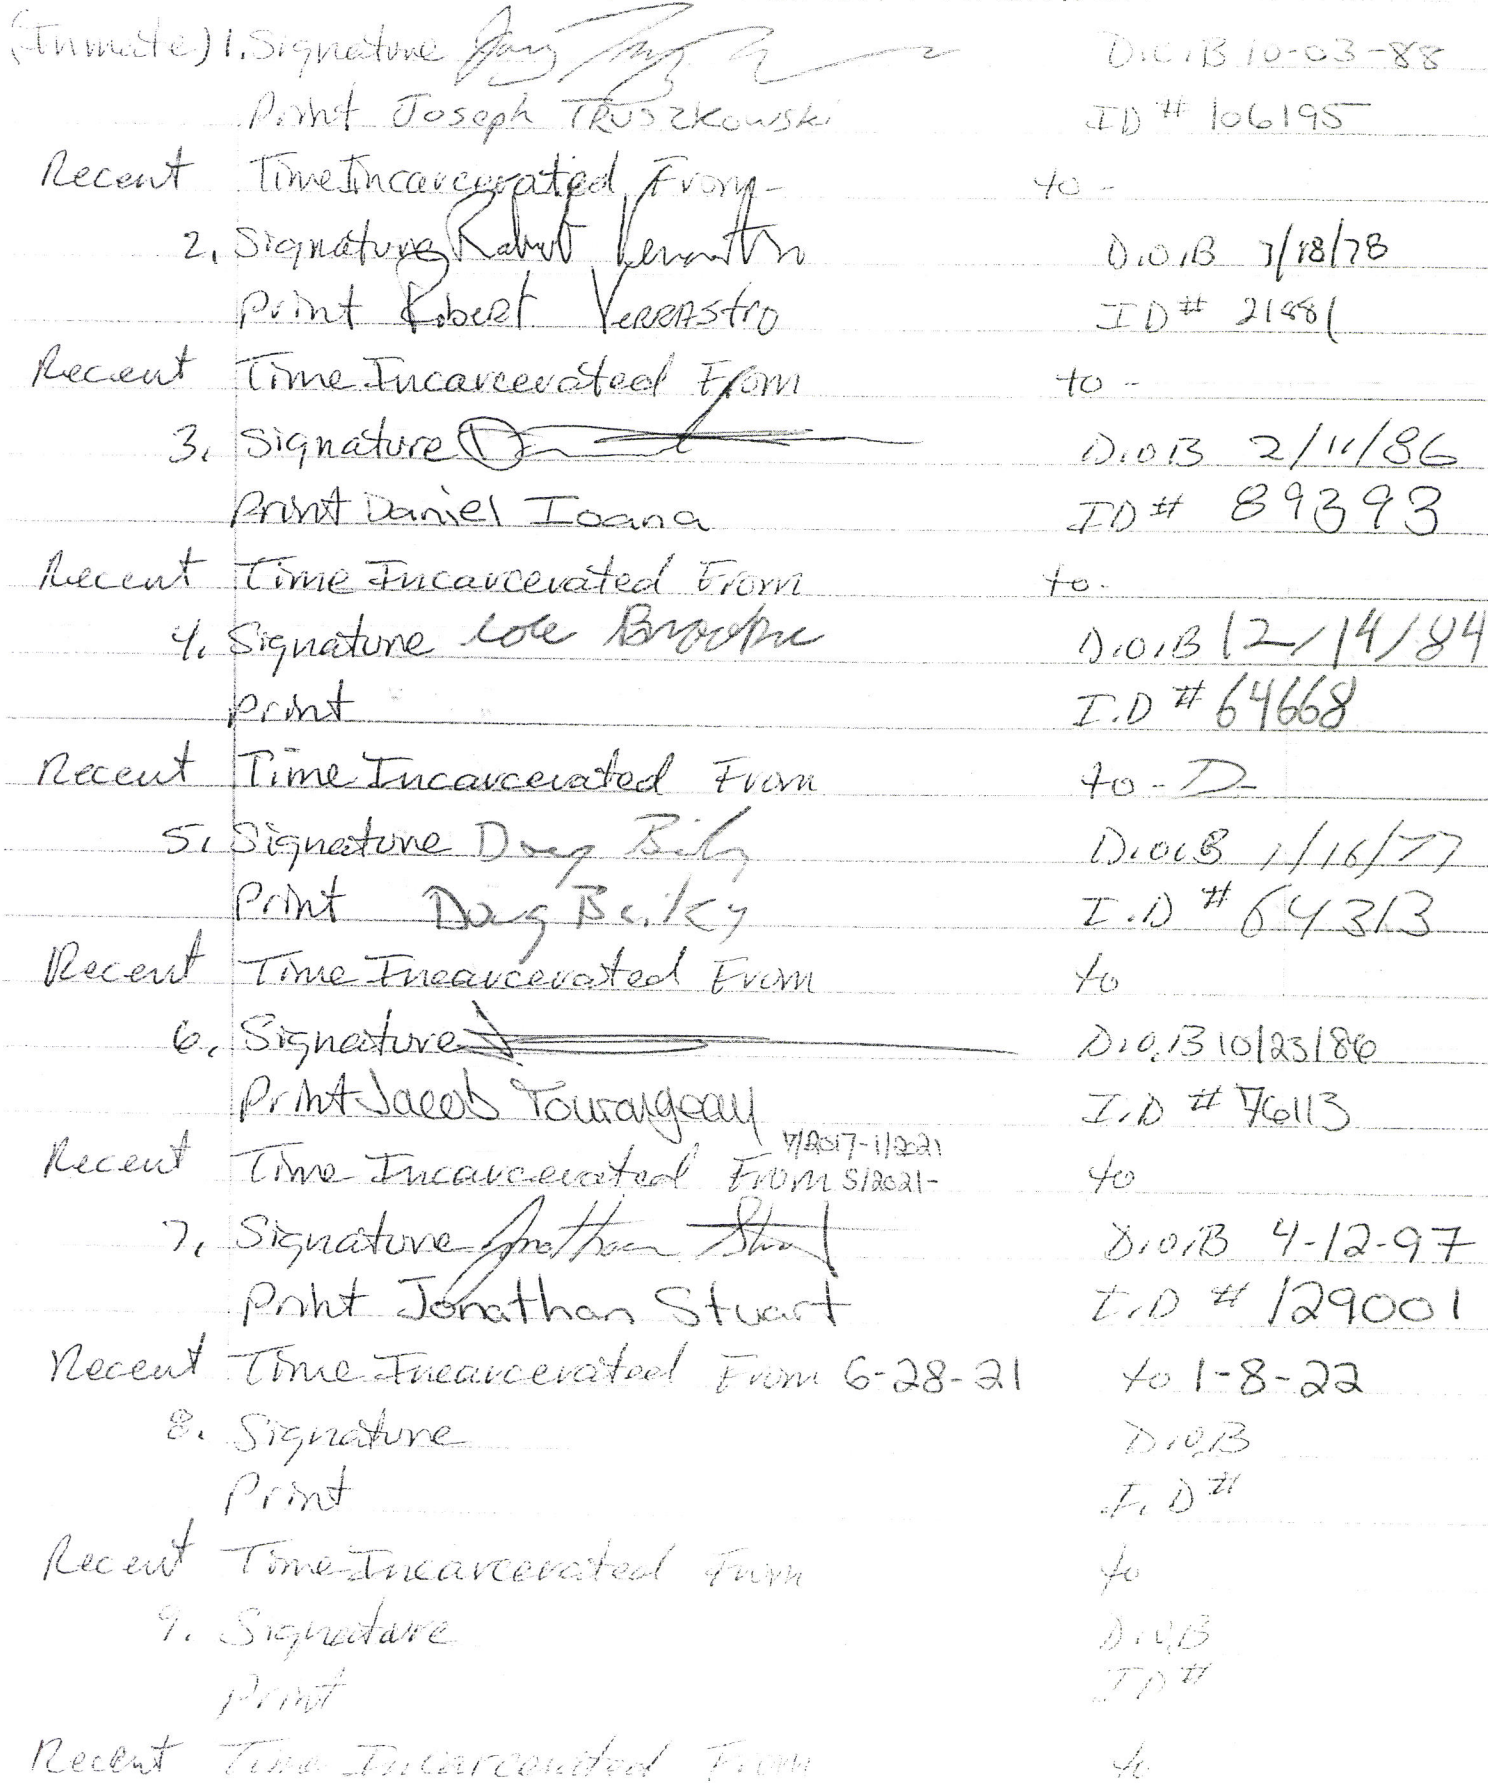 (Inmate) 1. Signature D.O.B 10-03-88
Print Joseph TRUSZKOWSKI ID # 106195
Recent Time Incarcerated From - to -
2. Signature Robert D.O.B 7/18/78
Print Robert VERRAStro ID # 21881
Recent Time Incarcerated From to -
3. Signature D.O.B 2/11/86
Print Daniel Ioana ID # 89393
Recent Time Incarcerated From to -
4. Signature Cole D.O.B 12/14/84
Print I.D # 64668
Recent Time Incarcerated From to - D-
5. Signature Doug D.O.B 1/16/77
Print Doug Bailey I.D # 64313
Recent Time Incarcerated From to
6. Signature D.O.B 10/23/86
Print Jacob Tourangeau I.D # 76113
7/2017-1/2021
Recent Time Incarcerated From 5/2021- to
7. Signature Jonathan Stuart D.O.B 4-12-97
Print Jonathan Stuart I.D # 129001
Recent Time Incarcerated From 6-28-21 to 1-8-22
8. Signature D.O.B
Print I.D #
Recent Time Incarcerated From to
9. Signature D.O.B
Print ID #
Recent Time Incarcerated From to